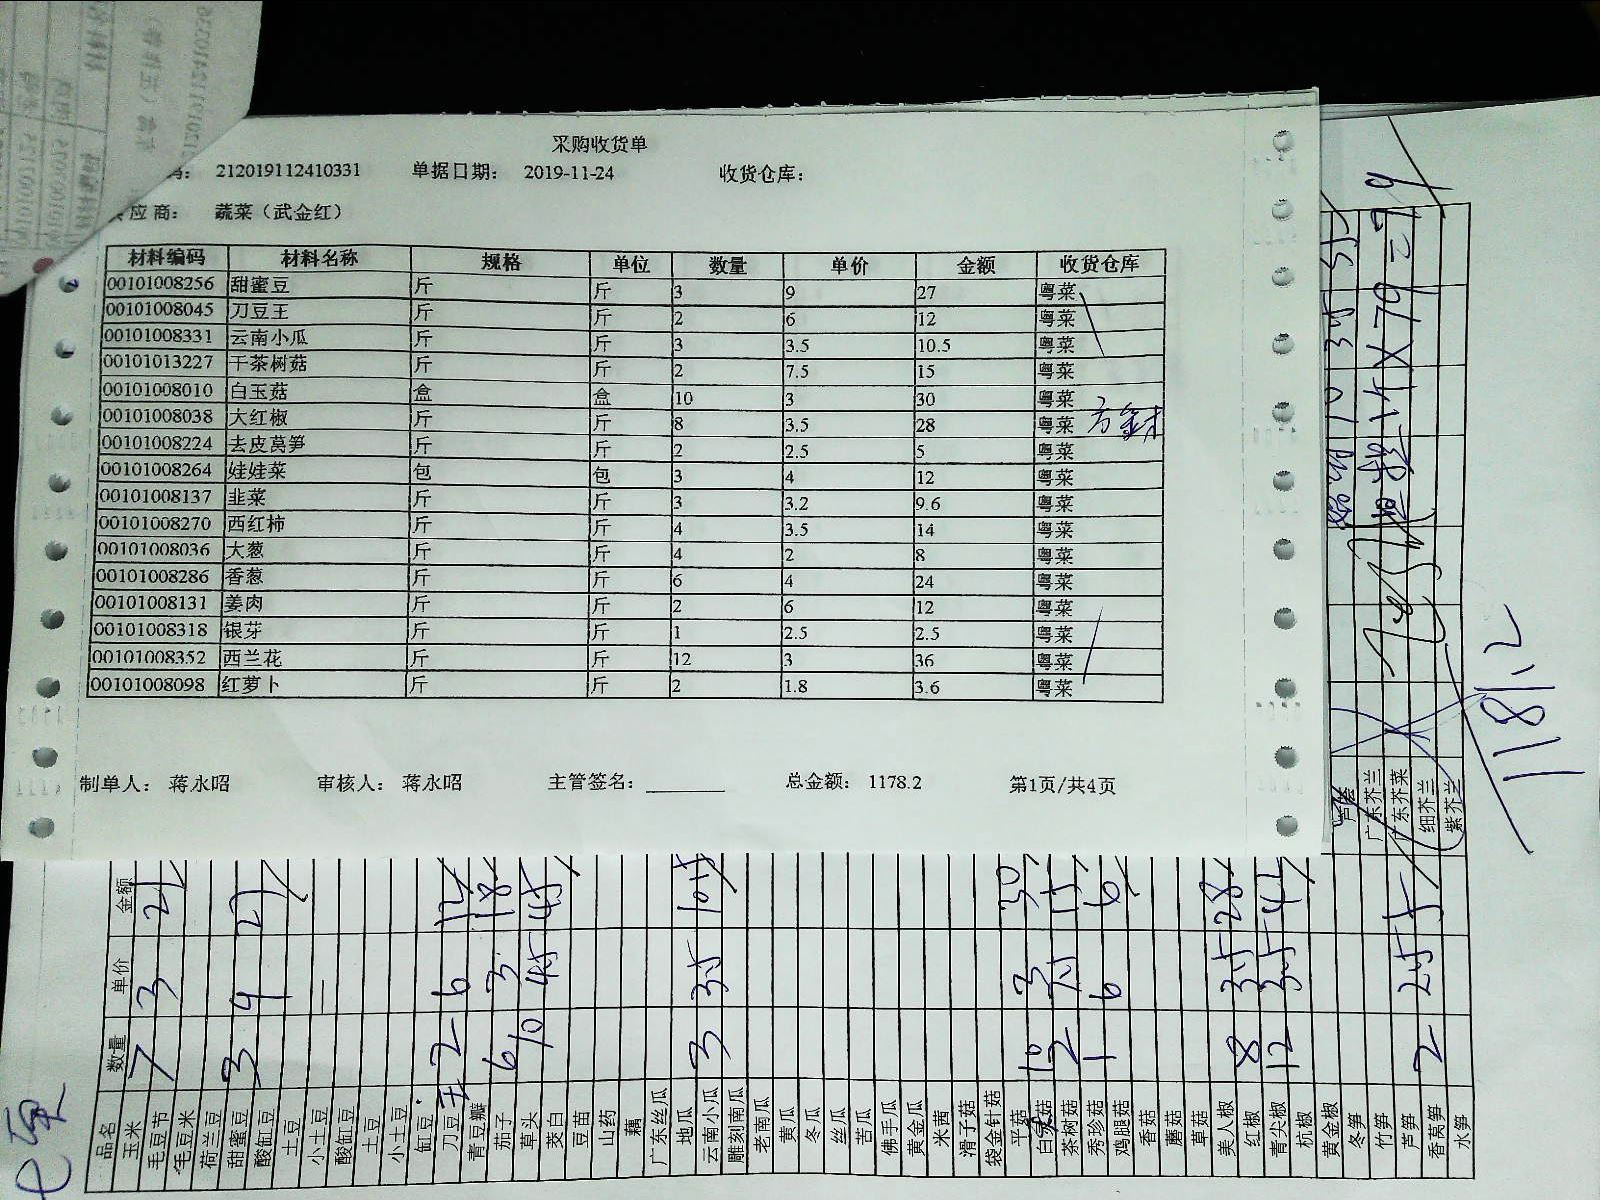 采购收货单
212019112410331 单据日期: 2019-11-24 收货仓库:
应商: 蔬菜（武金红）
材料编码 材料名称 规格 单位 数量 单价 金额 收货仓库
00101008256 甜蜜豆 斤 斤 3 9 27 粤菜
00101008045 刀豆王 斤 斤 2 6 12 粤菜
00101008331 云南小瓜 斤 斤 3 3.5 10.5 粤菜
00101013227 干茶树菇 斤 斤 2 7.5 15 粤菜
00101008010 白玉菇 盒 盒 10 3 30 粤菜
00101008038 大红椒 斤 斤 8 3.5 28 粤菜
00101008224 去皮莴笋 斤 斤 2 2.5 5 粤菜
00101008264 娃娃菜 包 包 3 4 12 粤菜
00101008137 韭菜 斤 斤 3 3.2 9.6 粤菜
00101008270 西红柿 斤 斤 4 3.5 14 粤菜
00101008036 大葱 斤 斤 4 2 8 粤菜
00101008286 香葱 斤 斤 6 4 24 粤菜
00101008131 姜肉 斤 斤 2 6 12 粤菜
00101008318 银芽 斤 斤 1 2.5 2.5 粤菜
00101008352 西兰花 斤 斤 12 3 36 粤菜
00101008098 红萝卜 斤 斤 2 1.8 3.6 粤菜
制单人: 蒋永昭 审核人: 蒋永昭 主管签名: 总金额: 1178.2 第1页/共4页
品名 数量 单价 金额
玉米 7 3 21
毛豆节
毛豆米
荷兰豆
甜蜜豆 3 9 27
酸缸豆
土豆
小土豆
酸缸豆
土豆
小土豆
缸豆
刀豆王 2 6 12
青豆瓣
茄子 6 3 18
草头 10 4.5 45
茭白
豆苗
山药
藕
广东丝瓜
地瓜
云南小瓜 3 3.5 10.5
雕刻南瓜
老南瓜
黄瓜
冬瓜
丝瓜
苦瓜
佛手瓜
黄金瓜
米茜
滑子菇
袋金针菇
平菇
白玉菇 10 3 30
茶树菇 2 7.5 15
秀珍菇 1 6 6
鸡腿菇
香菇
蘑菇
草菇
美人椒
红椒 8 3.5 28
青尖椒 12 3.5 42
杭椒
黄金椒
冬笋
竹笋
芦笋
香莴笋 2 2.5 5
水笋
芦荟
广东芥兰
广东芥菜
细芥兰
紫芥兰